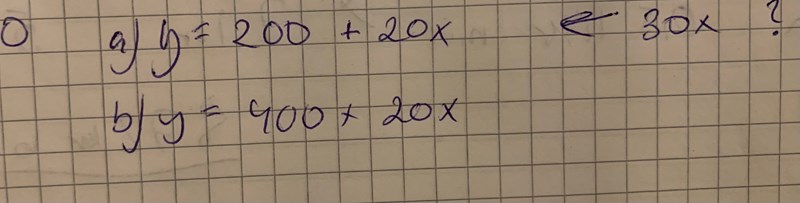 0 a) y = 200 + 20x ← 30x ?
b) y = 400 + 20x